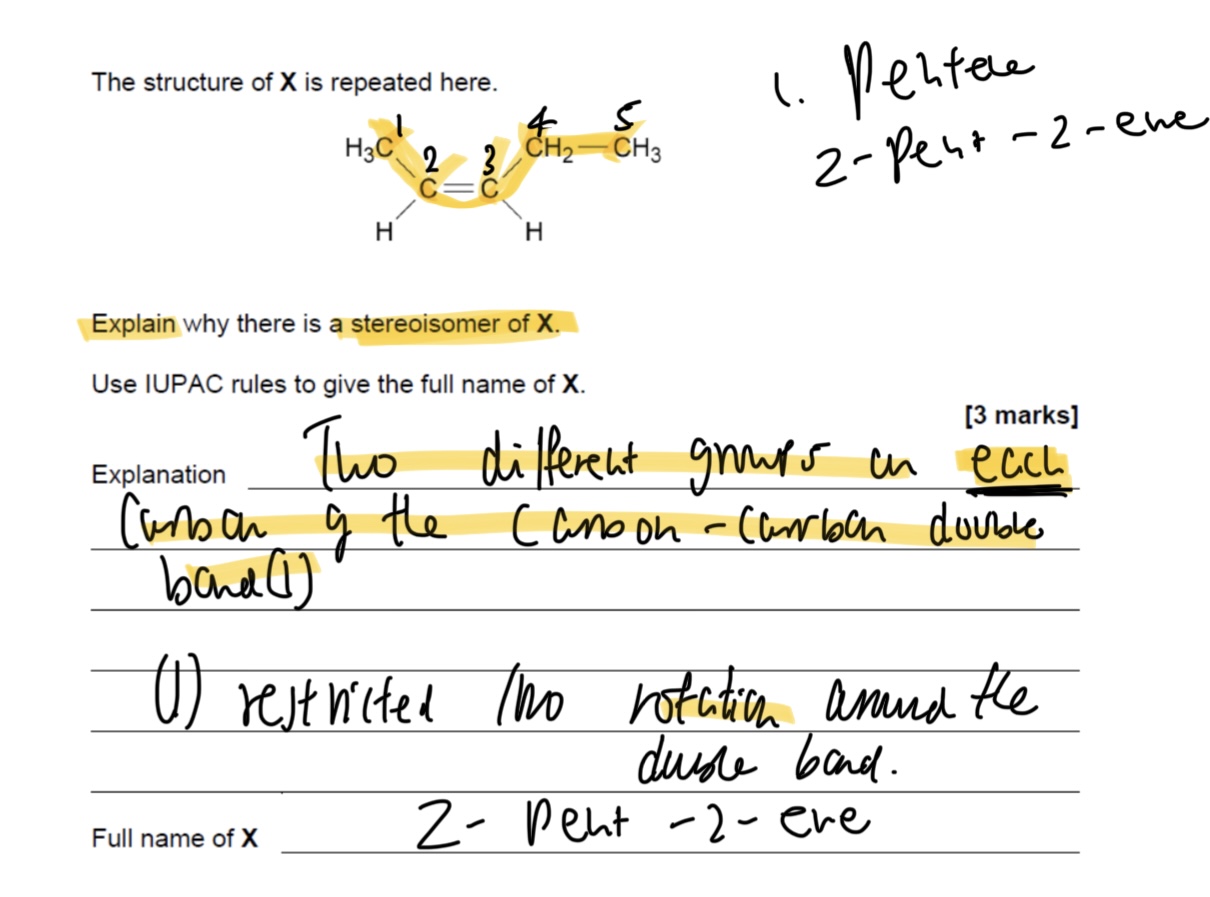 The structure of X is repeated here.
1. Pentene
Z-Pent-2-ene
1
4
5
H₃C
2
3
CH₂—CH₃
C=C
H
H
Explain why there is a stereoisomer of X.
Use IUPAC rules to give the full name of X.
[3 marks]
Explanation Two different groups on each
Carbon of the Carbon-Carbon double
bond(1)
(1) restricted /no rotation around the
double bond.
Full name of X Z-Pent-2-ene